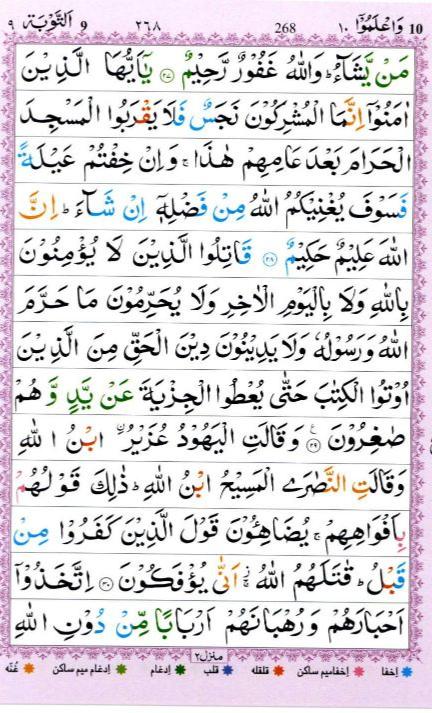 10 وَاعْلَمُوْٓا ١٠ 268 ٢٦٨ 9 اَلتَّوْبَة ٩
مَنْ يَّشَآءُ ؕ وَاللّٰهُ غَفُوْرٌ رَّحِيْمٌ ﴿۲۷﴾ يٰۤاَيُّهَا الَّذِيْنَ
اٰمَنُوْۤا اِنَّمَا الْمُشْرِكُوْنَ نَجَسٌ فَلَا يَقْرَبُوا الْمَسْجِدَ
الْحَرَامَ بَعْدَ عَامِهِمْ هٰذَا ۚ وَاِنْ خِفْتُمْ عَيْلَةً
فَسَوْفَ يُغْنِيْكُمُ اللّٰهُ مِنْ فَضْلِهٖۤ اِنْ شَآءَ ؕ اِنَّ
اللّٰهَ عَلِيْمٌ حَكِيْمٌ ﴿۲۸﴾ قَاتِلُوا الَّذِيْنَ لَا يُؤْمِنُوْنَ
بِاللّٰهِ وَلَا بِالْيَوْمِ الْاٰخِرِ وَلَا يُحَرِّمُوْنَ مَا حَرَّمَ
اللّٰهُ وَرَسُوْلُهٗ وَلَا يَدِيْنُوْنَ دِيْنَ الْحَقِّ مِنَ الَّذِيْنَ
اُوْتُوا الْكِتٰبَ حَتّٰى يُعْطُوا الْجِزْيَةَ عَنْ يَّدٍ وَّهُمْ
صٰغِرُوْنَ ﴿۲۹﴾ وَقَالَتِ الْيَهُوْدُ عُزَيْرُ اۨبْنُ اللّٰهِ
وَقَالَتِ النَّصٰرَى الْمَسِيْحُ ابْنُ اللّٰهِ ؕ ذٰلِكَ قَوْلُهُمْ
بِاَفْوَاهِهِمْ ۚ يُضَاهِـُٔوْنَ قَوْلَ الَّذِيْنَ كَفَرُوْا مِنْ
قَبْلُ ؕ قٰتَلَهُمُ اللّٰهُ ۚ اَنّٰى يُؤْفَكُوْنَ ﴿۳۰﴾ اِتَّخَذُوْۤا
اَحْبَارَهُمْ وَرُهْبَانَهُمْ اَرْبَابًا مِّنْ دُوْنِ اللّٰهِ
منزل۲
اخفا اخفامیم ساکن قلقله قلب ادغام ادغام میم ساکن غُنّه